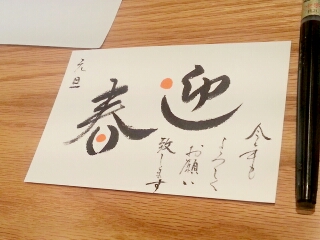 迎春
今年も
よろしく
お願い
致します
元旦